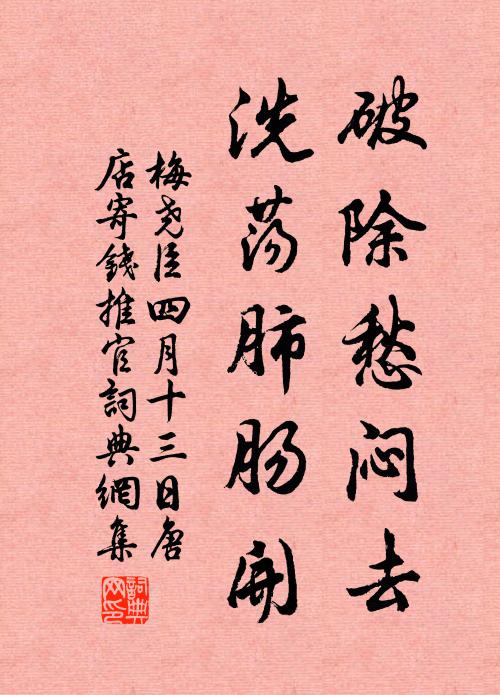 破除愁闷去
洗荡肺肠开
梅尧臣四月十三日唐
店寄錢推官詞典網集
詞典网印